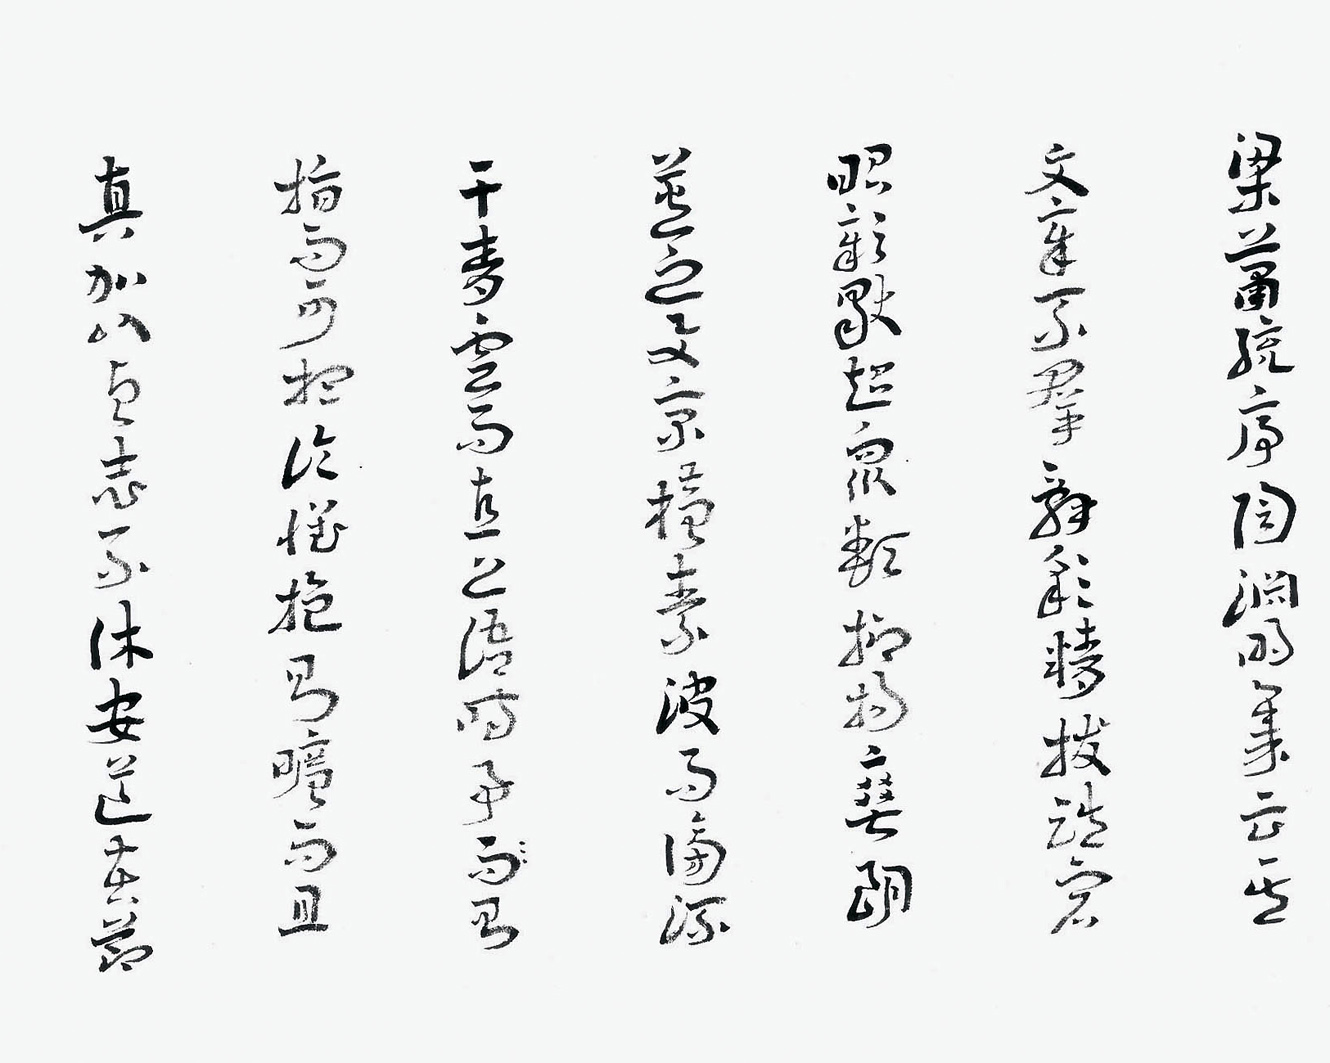 梁蕭統序陶淵明集云其
文章不羣辭彩精拔跌宕
昭彰獨超衆類抑揚爽朗
莫之與京橫素波而傍流
干青雲而直上語時事而則
指而可想論懷抱則曠而且
真加以貞志不休安道苦節